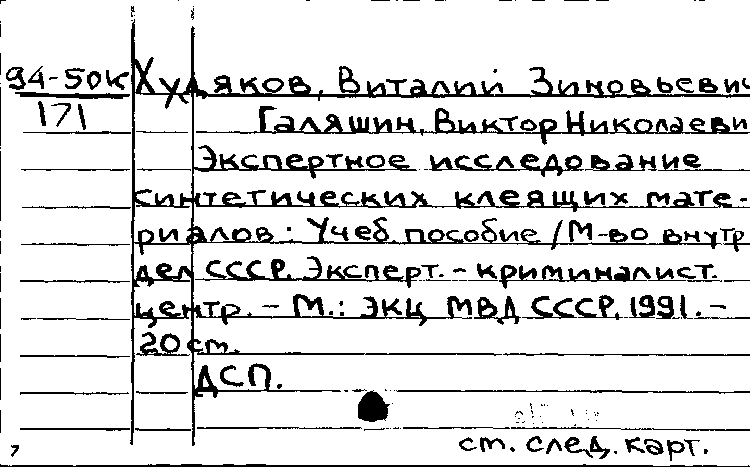 94-50к Худяков, Виталий Зиновьевич
171 Галяшин, Виктор Николаеви
Экспертное исследование
синтетических клеящих мате-
риалов: Учеб. пособие / М-во внутр
дел СССР. Эксперт.-криминалист.
центр. - М.: ЭКЦ МВД СССР, 1991. -
20 ст.
ДСП.
ст. след. карт.